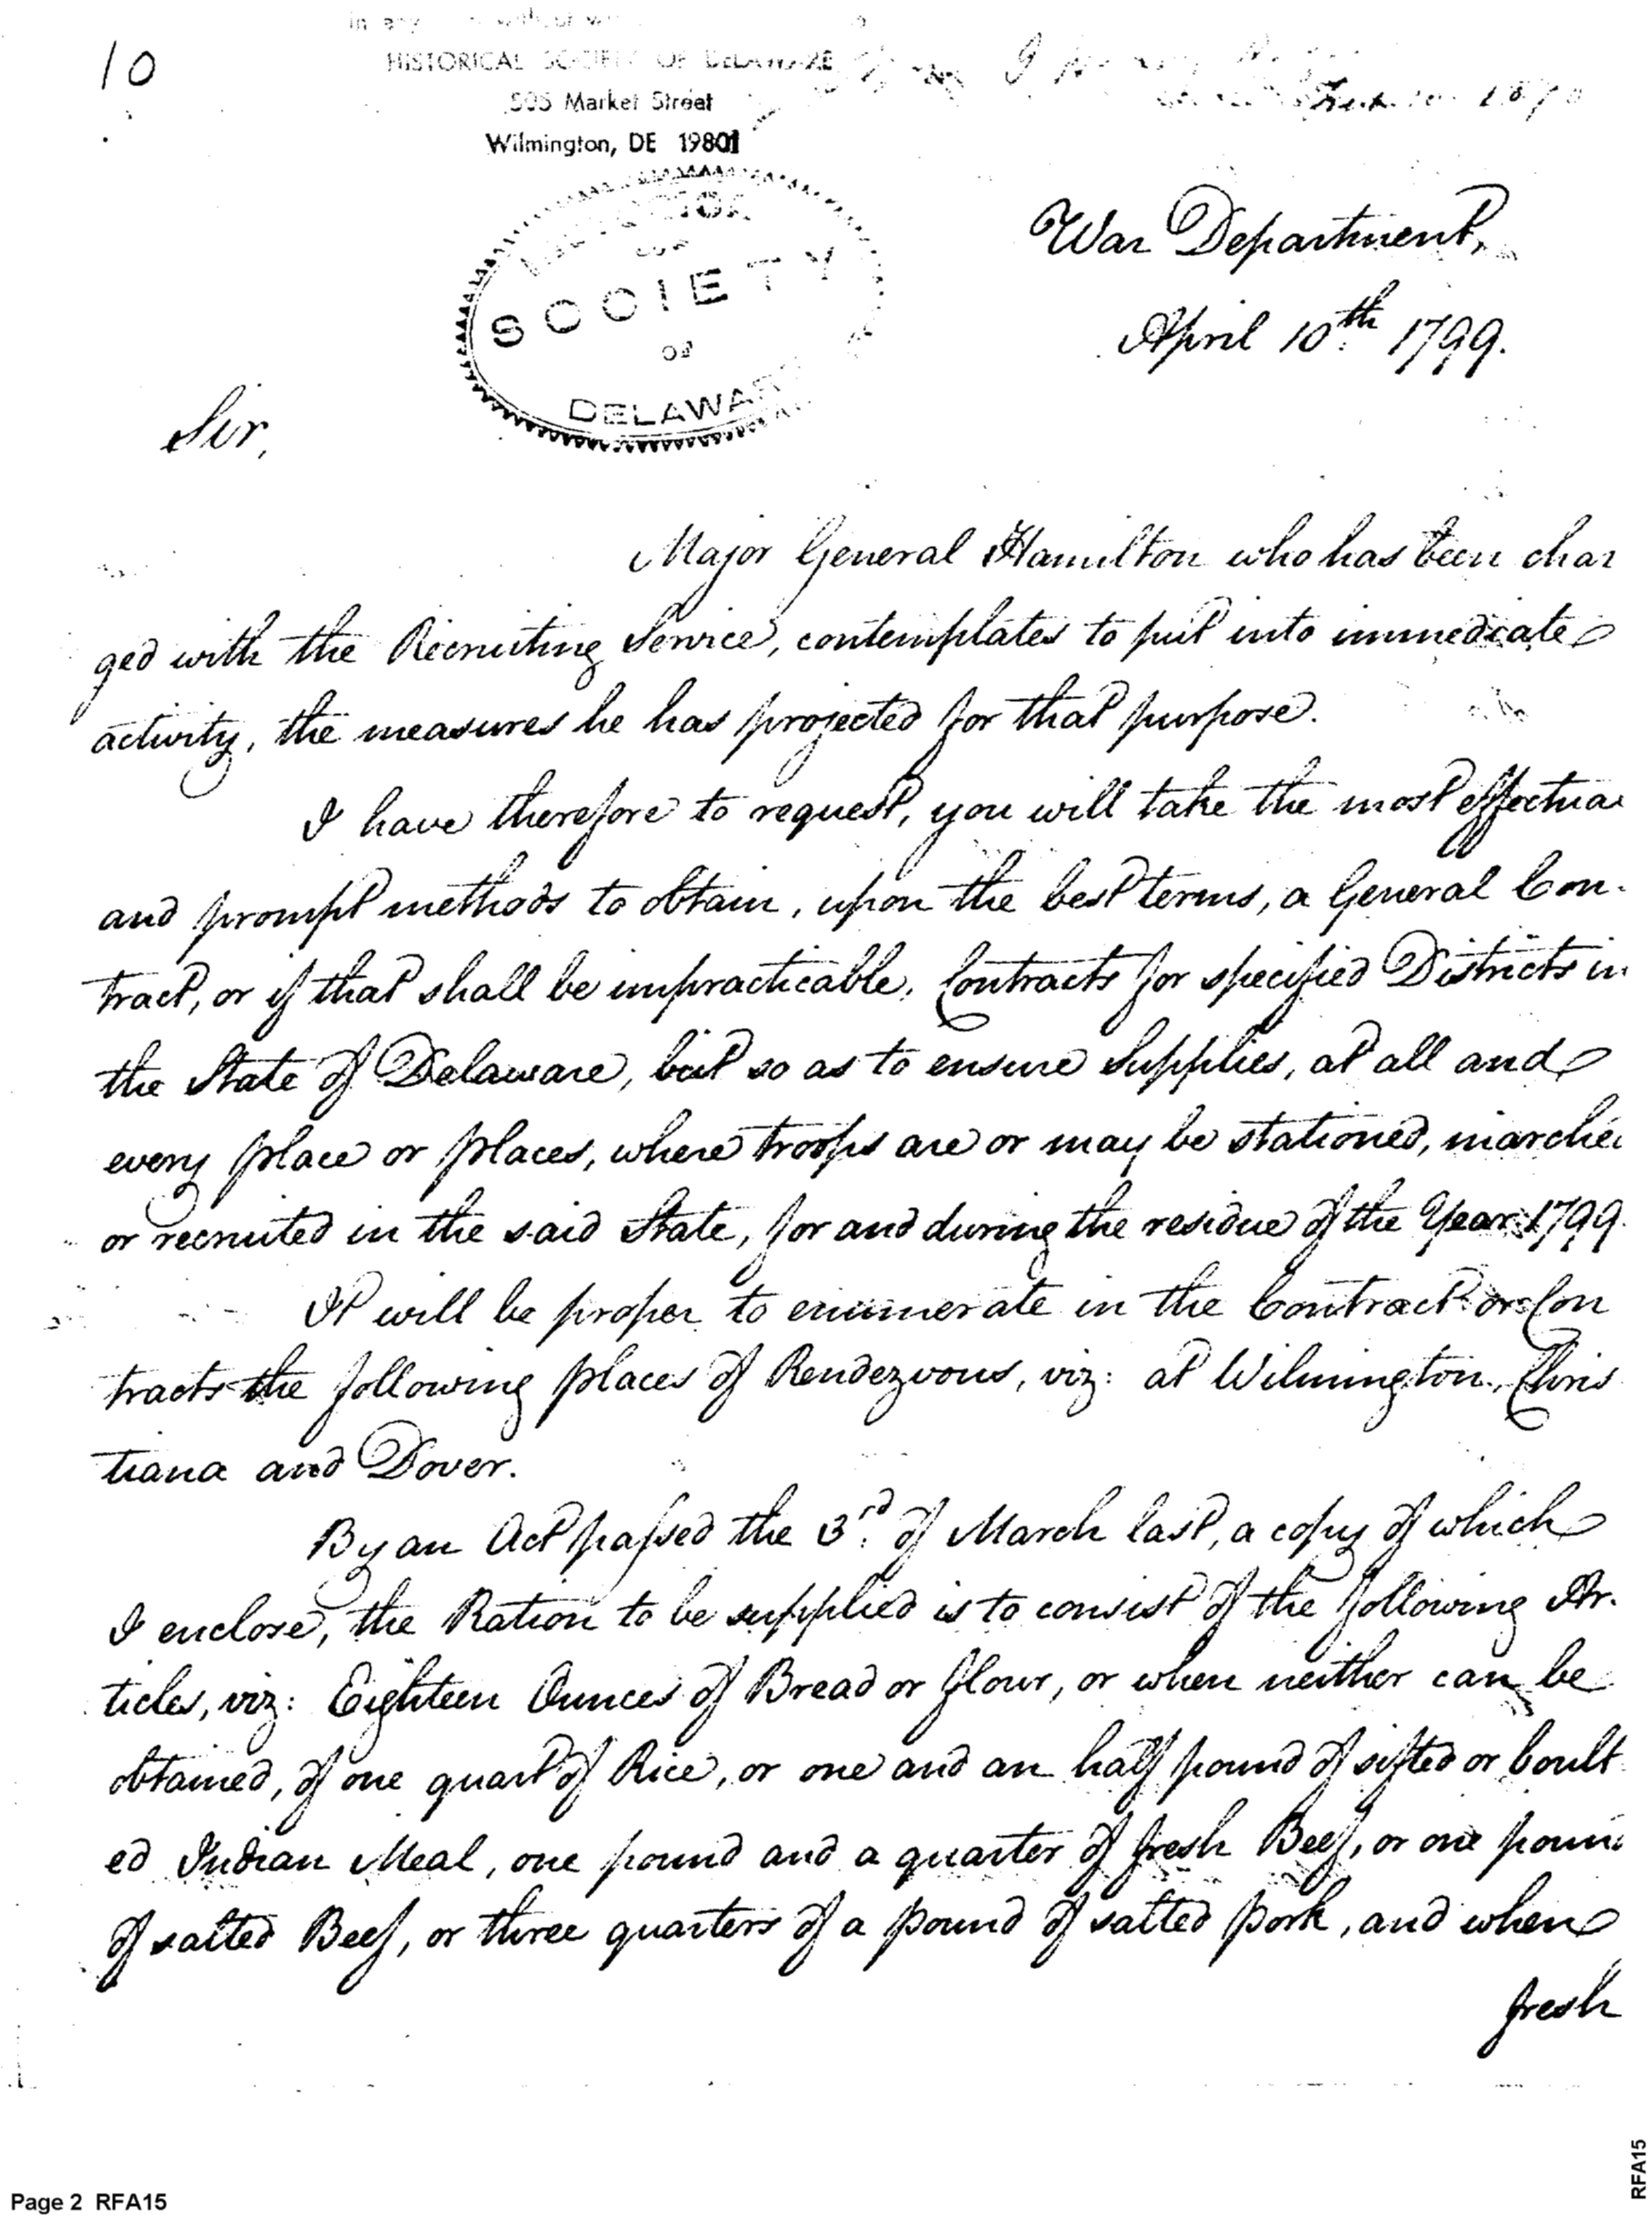 10
HISTORICAL SOCIETY OF DELAWARE
505 Market Street
Wilmington, DE 19801
SOCIETY
OF
DELAWARE
War Department,
April 10th 1799.
Sir,
Major General Hamilton who has been char
ged with the Recruiting Service, contemplates to put into immediate
activity, the measures he has projected for that purpose.
I have therefore to request, you will take the most effectua
and prompt methods to obtain, upon the best terms, a General Con-
tract, or if that shall be impracticable, Contracts for specified Districts in
the State of Delaware, but so as to ensure Supplies, at all and
every place or places, where troops are or may be stationed, marche
or recruited in the said State, for and during the residue of the Year 1799.
It will be proper to enumerate in the Contract or Con
tracts the following places of Rendezvous, viz: at Wilmington, Chris
tiana and Dover.
By an Act passed the 3rd. of March last, a copy of which
I enclose, the Ration to be supplied is to consist of the following Ar-
ticles, viz: Eighteen Ounces of Bread or flour, or when neither can be
obtained, of one quart of Rice, or one and an half pound of sifted or boult
ed Indian Meal, one pound and a quarter of fresh Beef, or one poun
of salted Beef, or three quarters of a pound of salted pork, and when
fresh
Page 2 RFA15
RFA15